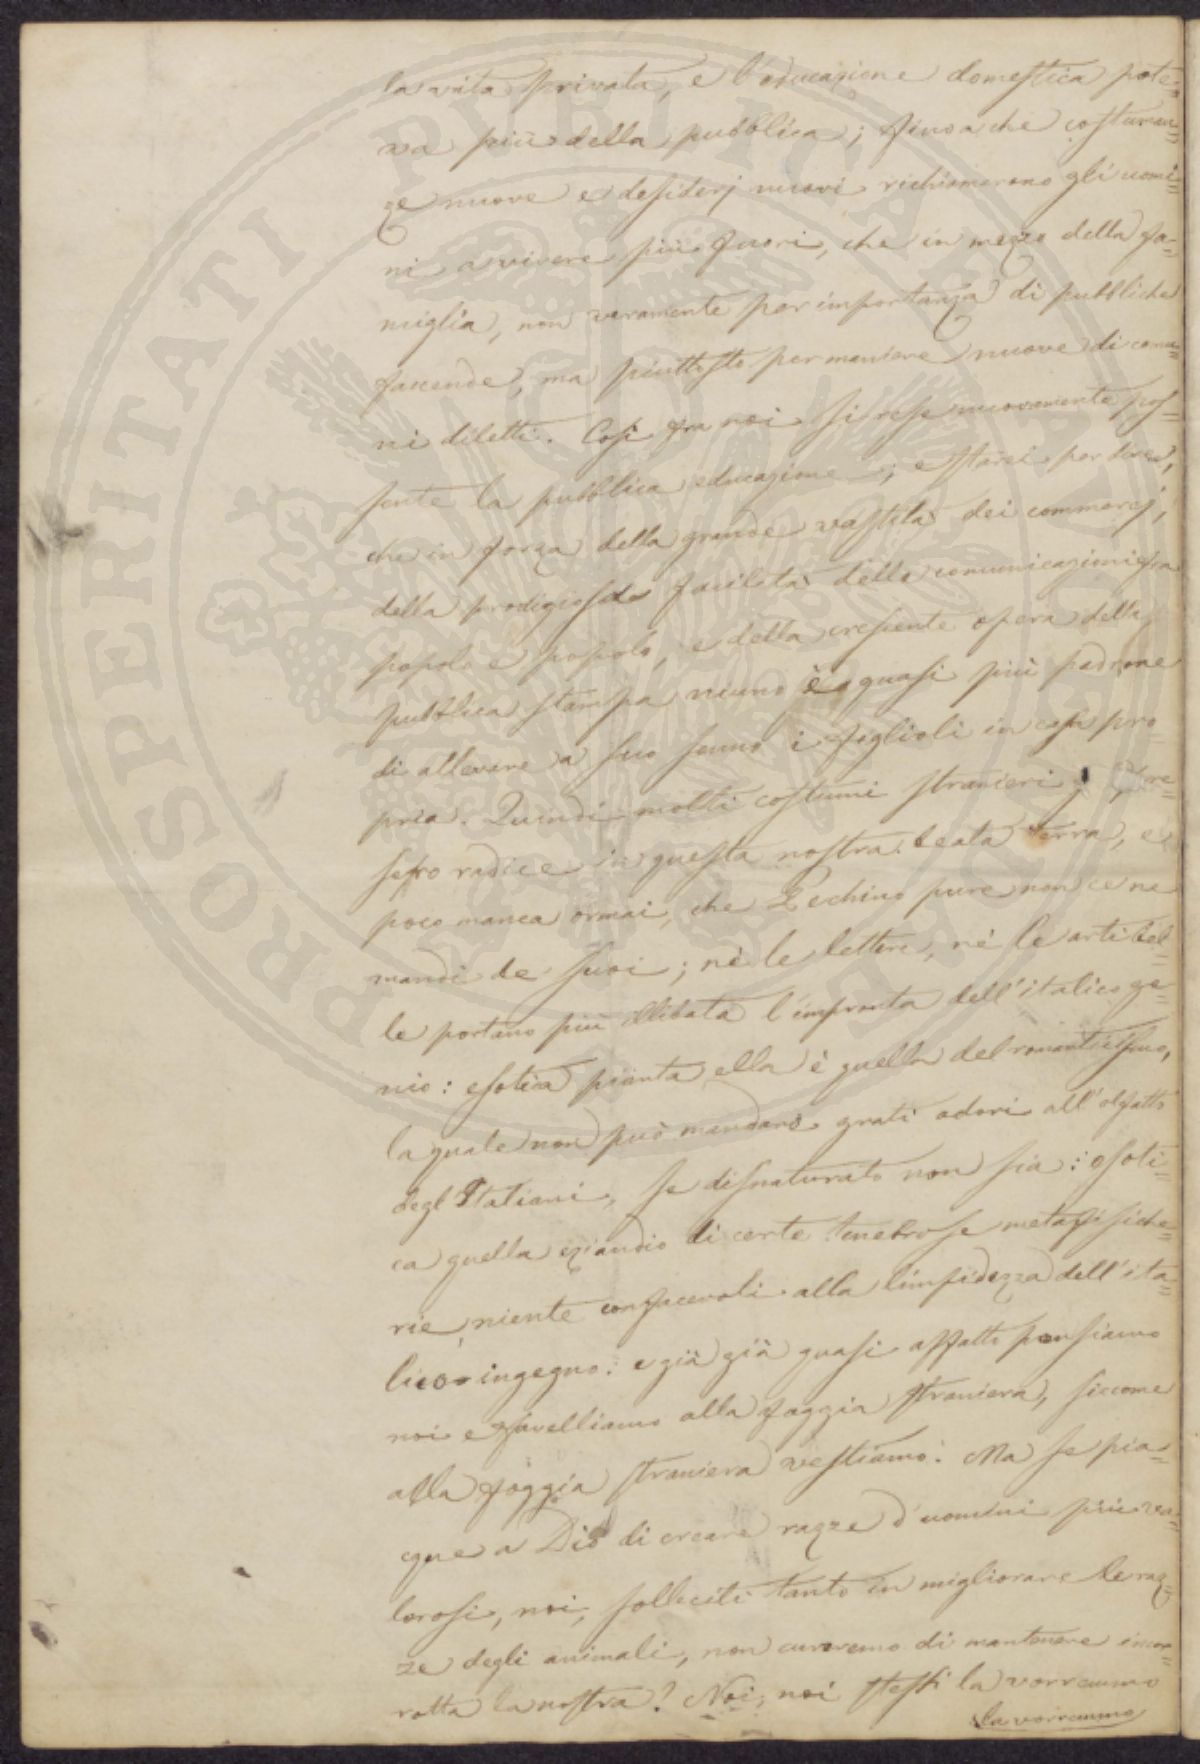 la vita privata, e l'educazione domestica pote=
va più della pubblica; fino a che costuman=
ze nuove e desiderj nuovi richiamarono gli uomi=
ni a vivere più fuori, che in mezzo della fa=
miglia, non veramente per importanza di pubbliche
faccende, ma piuttosto per maniere nuove di comu=
ni diletti. Così fra noi si rese nuovamente pos=
sente la pubblica educazione; e starei per dire,
che in forza della grande vastità dei commercj,
della prodigiosa facilità delle comunicazioni fra
popolo e popolo, e della crescente opera della
pubblica stampa niuno è quasi più padrone
di allevare a suo senno i figlioli in casa pro
pria. Quindi molti costumi stranieri pre=
sero radice in questa nostra beata terra, e
poco manca ormai, che Pechino pure non ce ne
mandi de' suoi; nè le lettere, nè le arti bel
le portano più illibata l'impronta dell'italico ge=
nio: esotica pianta ella è quella del romanticismo,
la quale non può mandare grati odori all'olfatto
degl'Italiani, se disnaturato non sia: esoti=
ca quella eziandio di certe tenebrose metafisiche=
rie niente confacevoli alla limpidezza dell'ita=
lico ingegno: e già già quasi affatto pensiamo
noi e favelliamo alla foggia straniera, siccome
alla foggia straniera vestiamo. Ma se pia=
cque a Dio di creare razze d'uomini più va=
lorosi, noi, solleciti tanto in migliorare le raz=
ze degli animali, non cureremo di mantenere incor=
rotta la nostra? Noi, noi stessi la vorremmo
la vorremmo
PROSPERITATI PUBLICAE